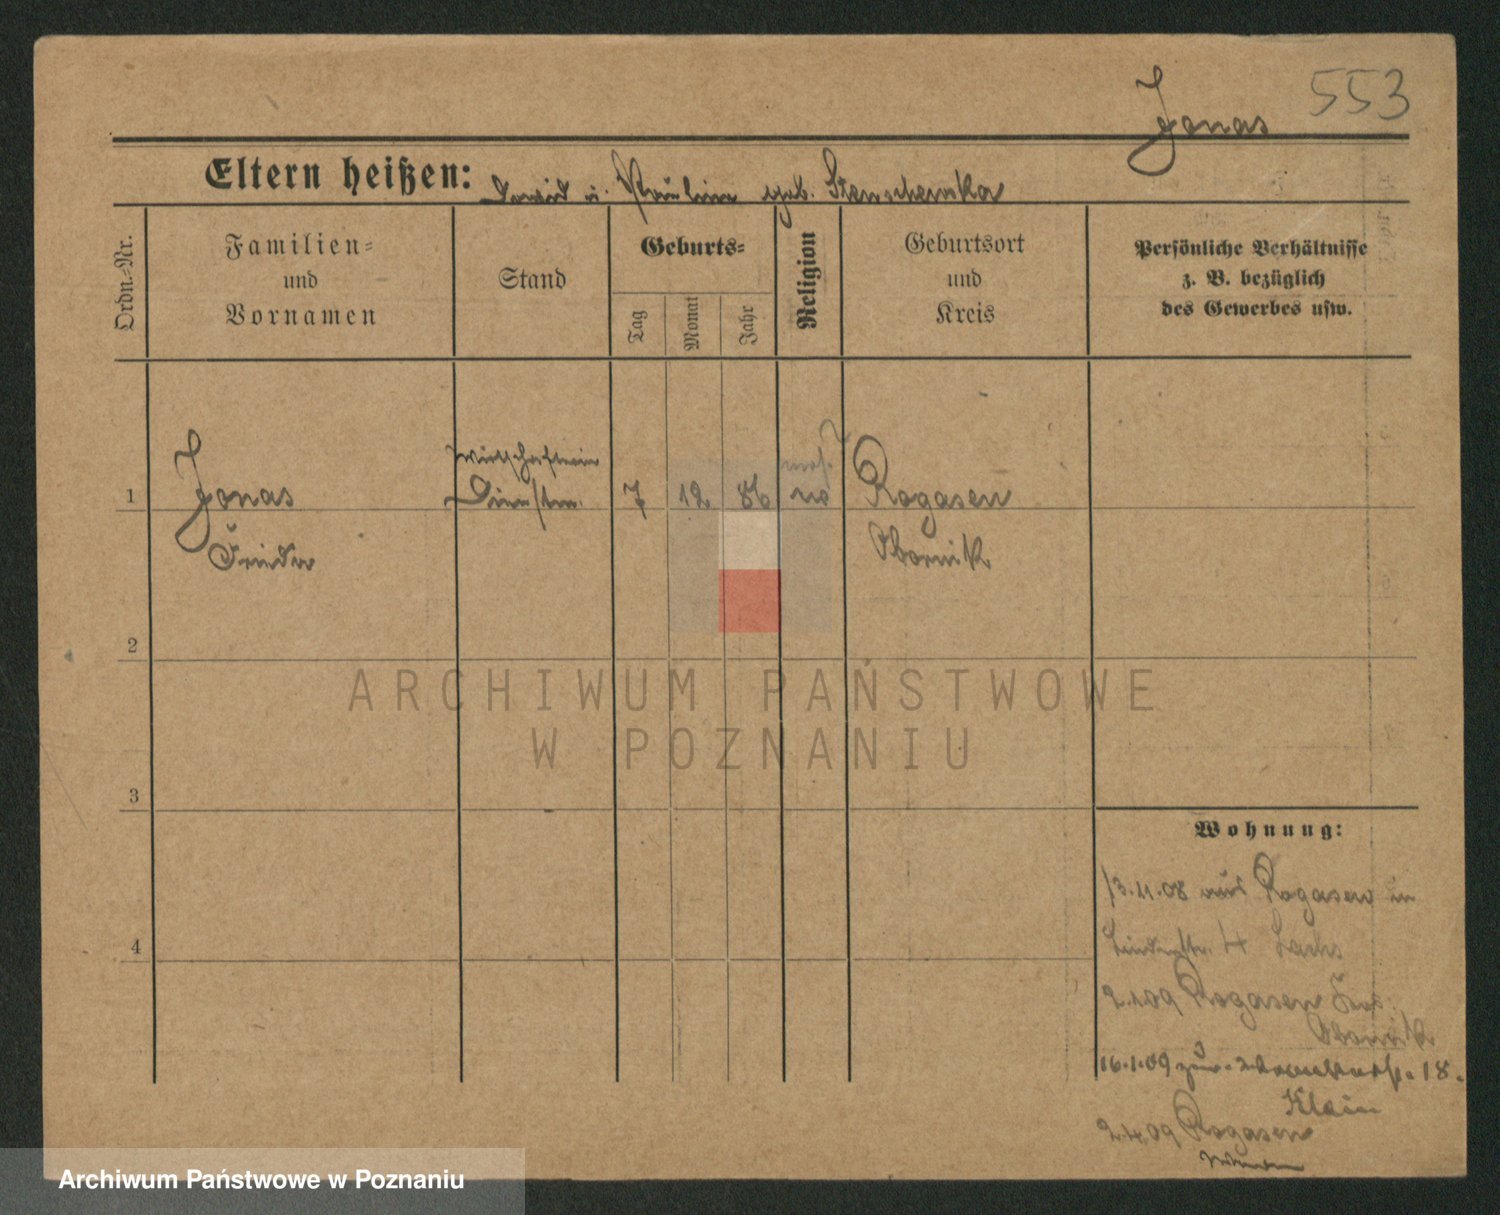 553
Jonas
Eltern heißen: David u. Paulina geb.
Ordn.-Nr.
Familien-
und
Vornamen
Stand
Geburts-
Tag
Monat
Jahr
Religion
Geburtsort
und
Kreis
Persönliche Verhältnisse
z. B. bezüglich
des Gewerbes usw.
Wirtschafterin
mos.
1 Jonas 7 12 86 Rogasen
Frieda Obornik
2
ARCHIWUM PAŃSTWOWE
W POZNANIU
3
Wohnung:
13.11.08 aus Rogasen in
4
Lindenstr. 4 Sachs
2.1.09 Rogasen Krs.
Obornik
16.1.09 zur. 18.
Klein
2.4.09 Rogasen
Archiwum Państwowe w Poznaniu